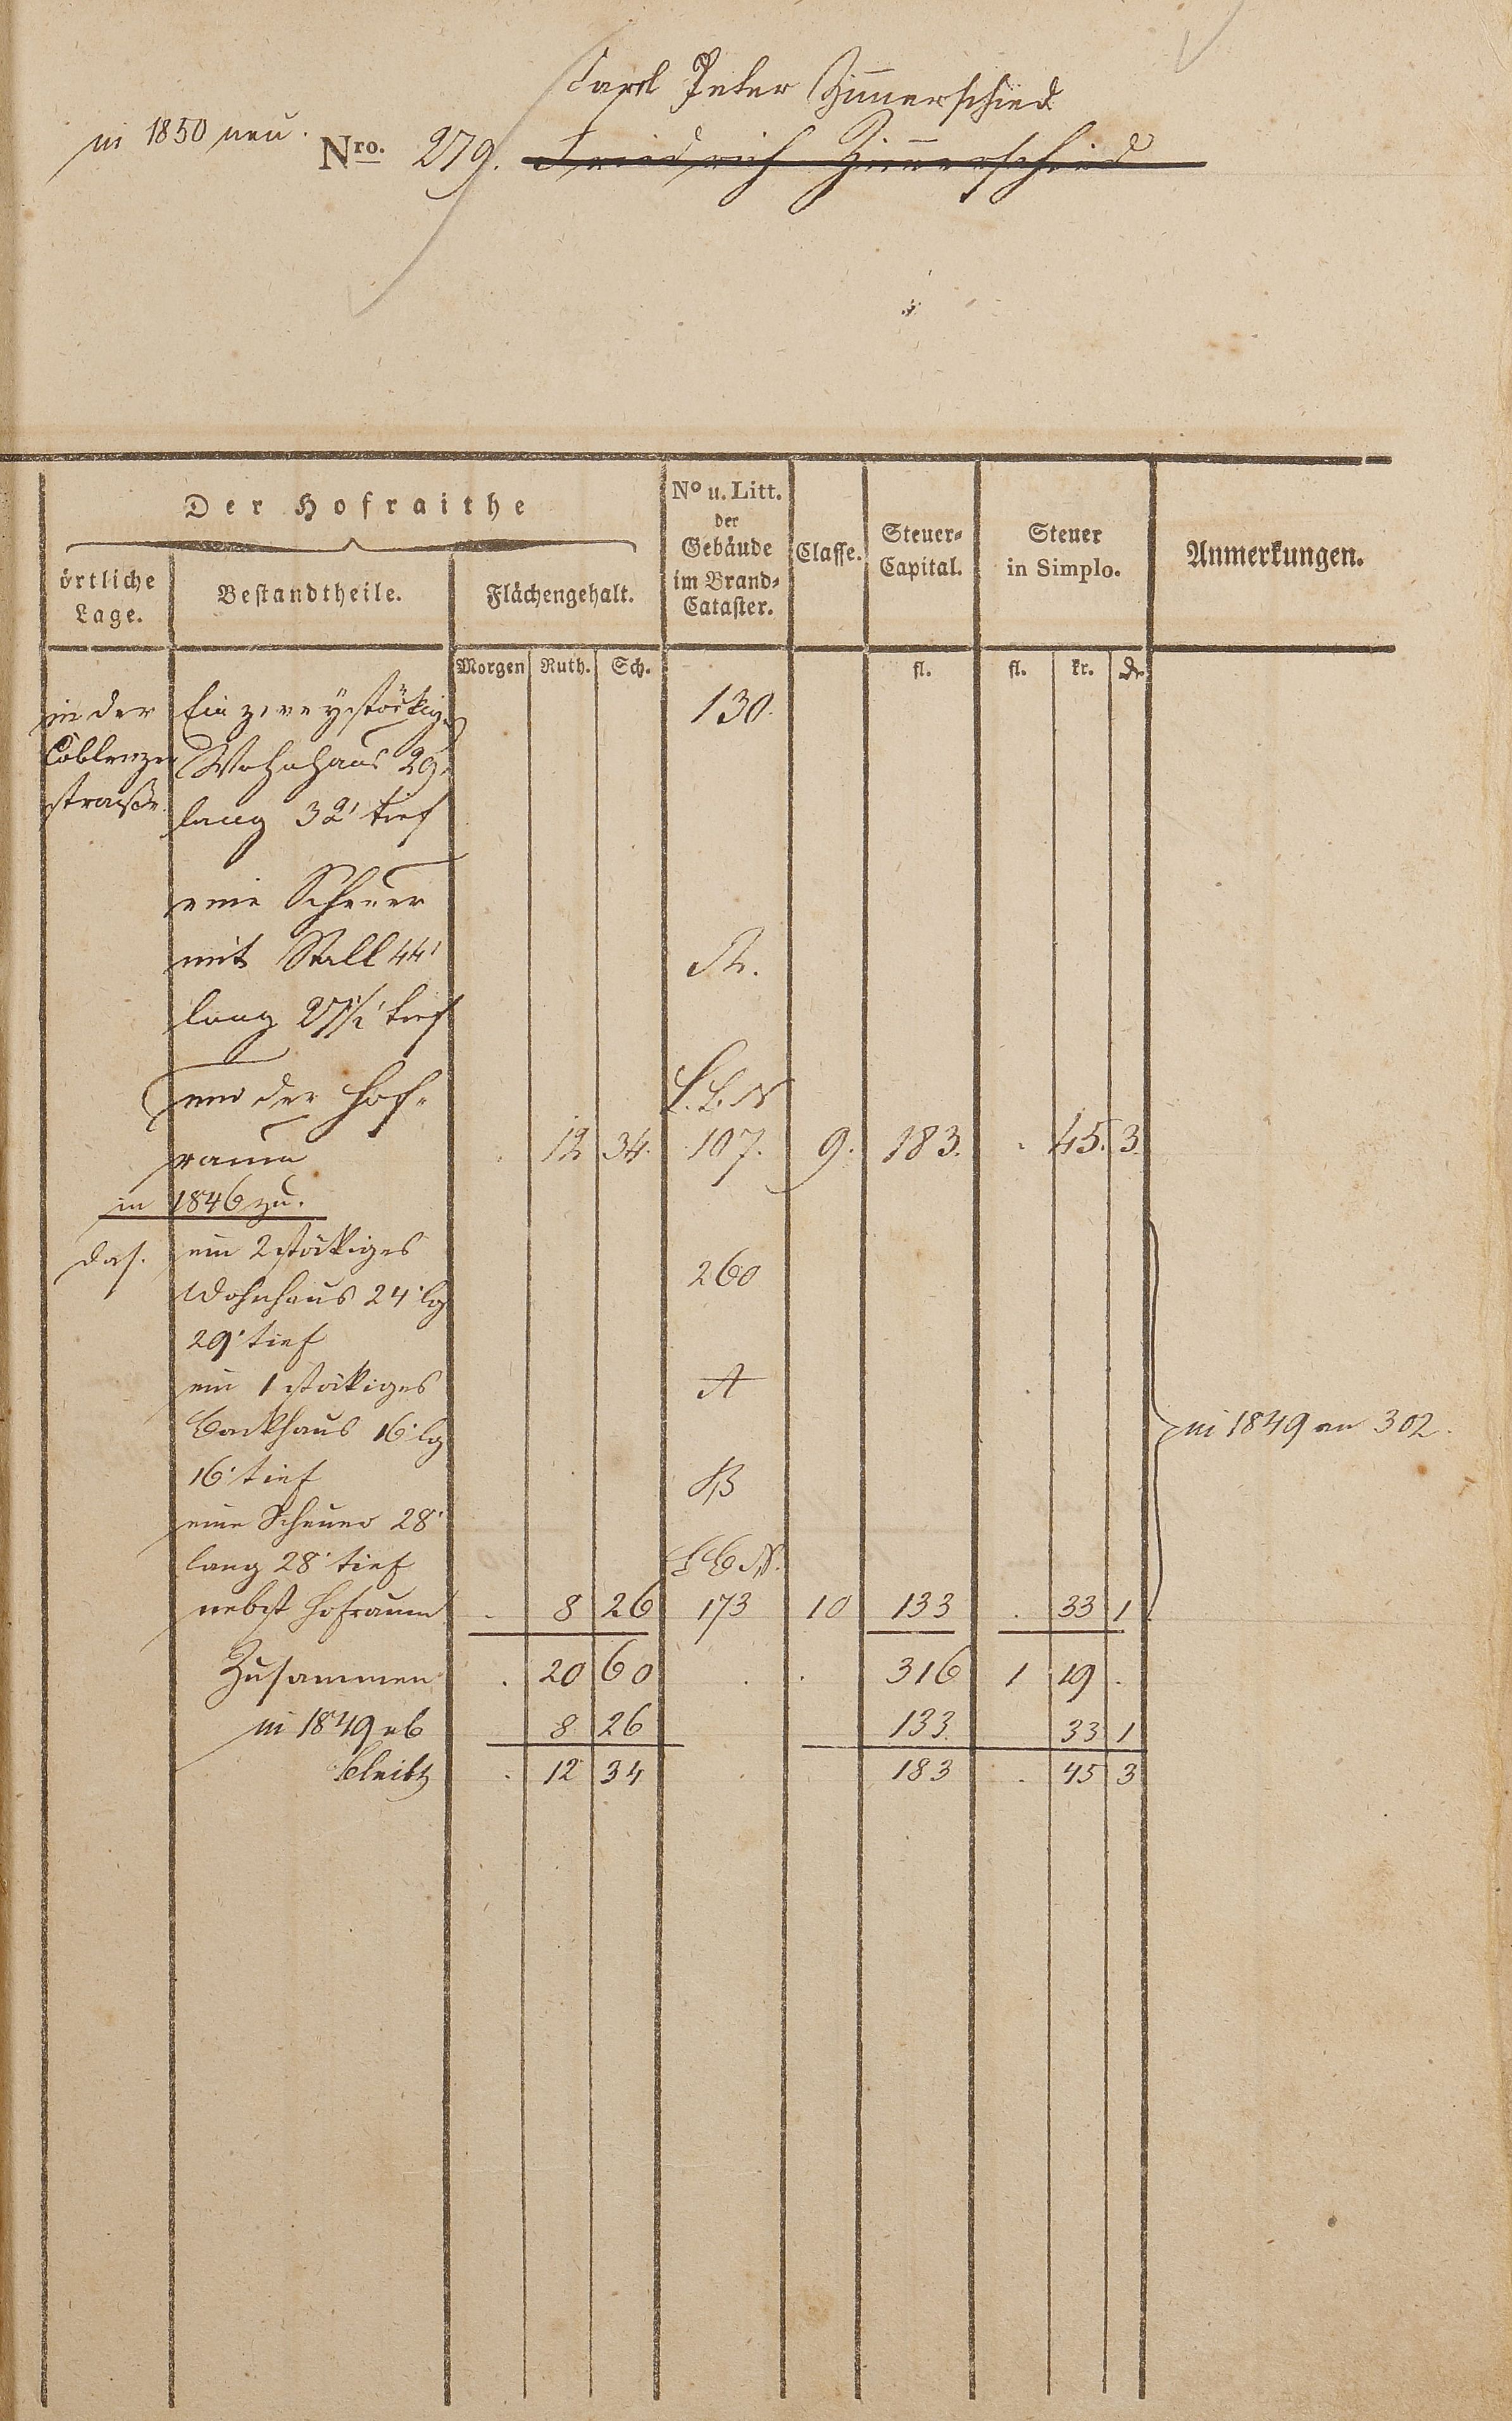 Carl Peter Zimmerschied
in 1850 neu.
Nro. 279. Friedrich Zimmerschied
Der Hofraithe
örtliche Lage.
Bestandtheile.
Flächengehalt.
No u. Litt. der Gebäude im Brand-Cataster.
Classe.
Steuer-Capital.
Steuer in Simplo.
Anmerkungen.
Morgen Ruth. Sch. fl. fl. kr. dr
in der Ein zweystöckig. 130.
Coblenzer Wohnhaus 29'
straße. lang 32' tief
eine Scheuer
mit Stall 44' A.
lang 27½' tief
und der Hof- L. B. N
raum . 12 34. 107. 9. 183. . 45. 3.
in 1846 zu.
das. ein 2 stöckiges
Wohnhaus 24' lg 260
29' tief
ein 1 stöckiges A
Backhaus 16' lg
16' tief B
eine Scheuer 28'
lang 28' tief L B N.
nebst Hofraum . 8 26 173 10 133 . 33 1
in 1849 an 302.
Zusammen . 20 60 . . 316 1 19 .
in 1849 ab 8 26 133 33 1
bleibt . 12 34 . 183 . 45 3